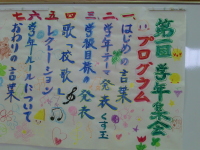 第一回 学年集会
プログラム
一 はじめの言葉
二 学年テーマ発表 くす玉
三 学級目標の発表
四 歌「校歌」
五 レクレーション
六 学年ルールについて
七 おわりの言葉